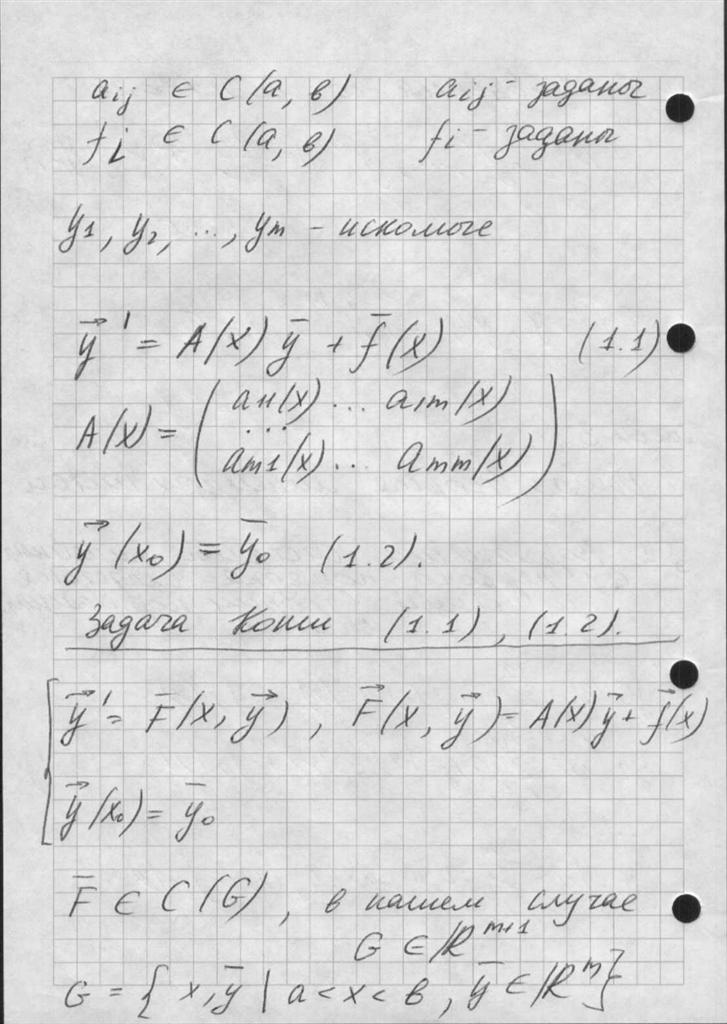 aij ∈ C(a, в) aij - заданы
fi ∈ C(a, в) fi - заданы
y1, y2, ..., ym - искомые
y⃗' = A(x) ȳ + f̄(x) (1.1)
A(x) = ( a11(x) ... a1m(x)
...
am1(x) ... amm(x) )
y⃗(x0) = ȳ0 (1.2).
Задача Коши (1.1), (1.2).
y⃗' = F̄(x, y⃗), F̄(x, y⃗) = A(x)y⃗ + f⃗(x)
y⃗(x0) = ȳ0
F̄ ∈ C(G), в нашем случае
G ∈ ℝ^m+1
G = { x, ȳ | a < x < в, ȳ ∈ ℝ^m }